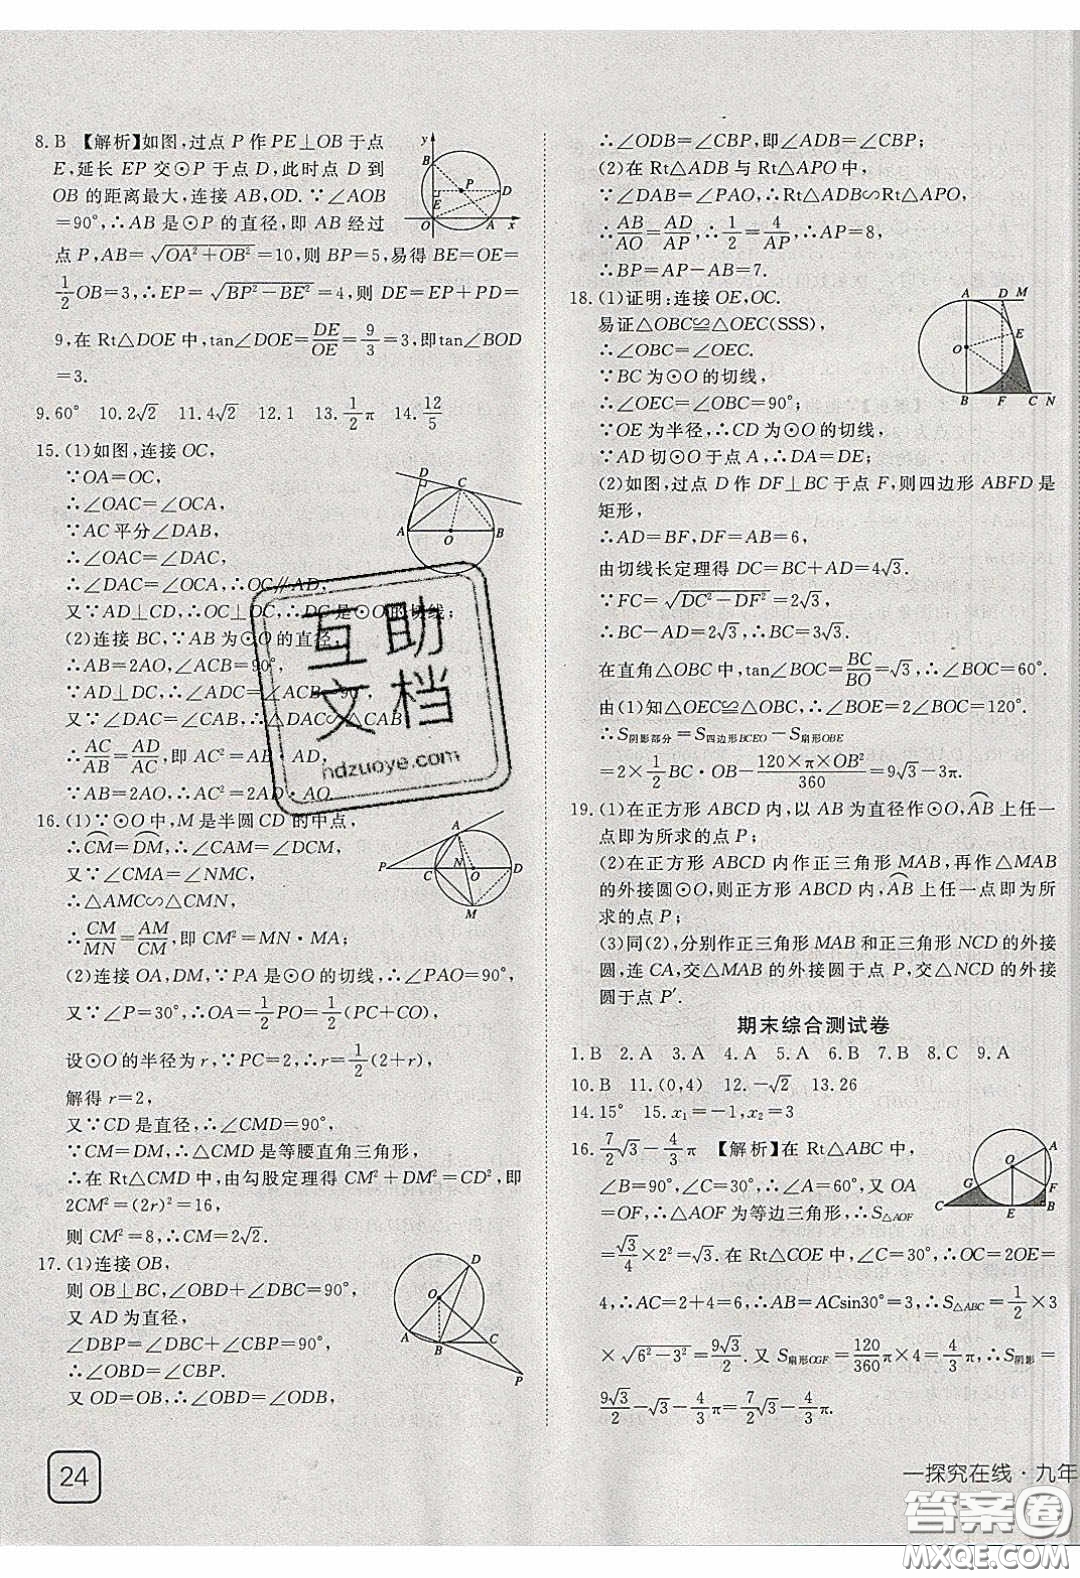 8.B 【解析】如图,过点 P 作 PE⊥OB 于点
E,延长 EP 交⊙P 于点 D,此时点 D 到
OB 的距离最大,连接 AB,OD.∵∠AOB
=90°,∴AB 是⊙P 的直径,即 AB 经过
点 P,AB=√(OA²+OB²)=10,则 BP=5,易得 BE=OE=
1/2OB=3,∴EP=√(BP²-BE²)=4,则 DE=EP+PD=
9,在 Rt△DOE 中,tan∠DOE=DE/OE=9/3=3,即tan∠BOD
=3.
9.60° 10.2√2 11.4√2 12.1 13.1/2π 14.12/5
15.(1)如图,连接 OC,
∵OA=OC,
∴∠OAC=∠OCA,
∵AC 平分∠DAB,
∴∠OAC=∠DAC,
∴∠DAC=∠OCA,∴OC∥AD,
又∵AD⊥CD,∴OC⊥DC,∴DC是⊙O的切线;
(2)连接 BC,∵AB 为⊙O 的直径,
∴AB=2AO,∠ACB=90°,
∵AD⊥DC,∴∠ADC=∠ACB=90°,
又∵∠DAC=∠CAB,∴△DAC∽△CAB,
∴AC/AB=AD/AC,即 AC²=AB·AD,
∵AB=2AO,∴AC²=2AD·AO.
16.(1)∵⊙O中,M 是半圆CD 的中点,
∴CM=DM,∴∠CAM=∠DCM,
又∵∠CMA=∠NMC,
∴△AMC∽△CMN,
∴CM/MN=AM/CM,即 CM²=MN·MA;
(2)连接 OA,DM,∵PA 是⊙O 的切线,∴∠PAO=90°,
又∵∠P=30°,∴OA=1/2PO=1/2(PC+CO),
设⊙O 的半径为 r,∵PC=2,∴r=1/2(2+r),
解得 r=2,
又∵CD 是直径,∴∠CMD=90°,
∵CM=DM,∴△CMD 是等腰直角三角形,
∴在 Rt△CMD 中,由勾股定理得 CM²+DM²=CD²,即
2CM²=(2r)²=16,
则 CM²=8,∴CM=2√2.
17.(1)连接 OB,
则 OB⊥BC,∠OBD+∠DBC=90°,
又 AD 为直径,
∠DBP=∠DBC+∠CBP=90°,
∴∠OBD=∠CBP.
又 OD=OB,∴∠OBD=∠ODB,
∴∠ODB=∠CBP,即∠ADB=∠CBP.
(2)在 Rt△ADB 与 Rt△APO 中,
∵∠DAB=∠PAO,∴Rt△ADB∽Rt△APO,
∴AB/AO=AD/AP,∴1/2=4/AP,∴AP=8,
∴BP=AP-AB=7.
18.(1)证明:连接 OE,OC.
易证△OBC≌△OEC(SSS),
∴∠OBC=∠OEC.
∵BC 为⊙O 的切线,
∴∠OEC=∠OBC=90°;
∵OE 为半径,∴CD 为⊙O 的切线,
∵AD 切⊙O 于点 A,∴DA=DE;
(2)如图,过点 D 作 DF⊥BC 于点 F,则四边形 ABFD 是
矩形,
∴AD=BF,DF=AB=6,
由切线长定理得 DC=BC+AD=4√3.
∵FC=√(DC²-DF²)=2√3,
∴BC-AD=2√3,∴BC=3√3.
在直角△OBC 中,tan∠BOC=BC/BO=√3,∴∠BOC=60°.
由(1)知△OEC≌△OBC,∴∠BOE=2∠BOC=120°.
∴S阴影部分=S四边形BCEO-S扇形OBE
=2×1/2BC·OB-120×π×OB²/360=9√3-3π.
19.(1)在正方形 ABCD 内,以 AB 为直径作⊙O,AB 上任一
点即为所求的点 P;
(2)在正方形 ABCD 内作正三角形 MAB,再作△MAB
的外接圆⊙O,则正方形 ABCD 内,AB 上任一点即为所
求的点 P;
(3)同(2),分别作正三角形 MAB 和正三角形 NCD 的外接
圆,连 CA,交△MAB 的外接圆于点 P,交△NCD 的外接
圆于点 P′.
期末综合测试卷
1.B 2.A 3.A 4.A 5.A 6.B 7.B 8.C 9.A
10.B 11.(0,4) 12.-√2 13.26
14.15° 15.x₁=-1,x₂=3
16.7/2√3-4/3π 【解析】在 Rt△ABC 中,
∠B=90°,∠C=30°,∴∠A=60°,又 OA
=OF,∴△AOF 为等边三角形,∴S△AOF
=√3/4×2²=√3.在 Rt△COE 中,∠C=30°,∴OC=2OE=
4,∴AC=2+4=6,∴AB=ACsin30°=3,∴S△ABC=1/2×3
×√(6²-3²)=9√3/2.又 S扇形OGF=120/360π×4=4/3π,∴S阴影=
9√3/2-√3-4/3π=7/2√3-4/3π.
24
一探究在线·九年
互助
文档
hdzuoye.com
答案圈
MXQE.COM